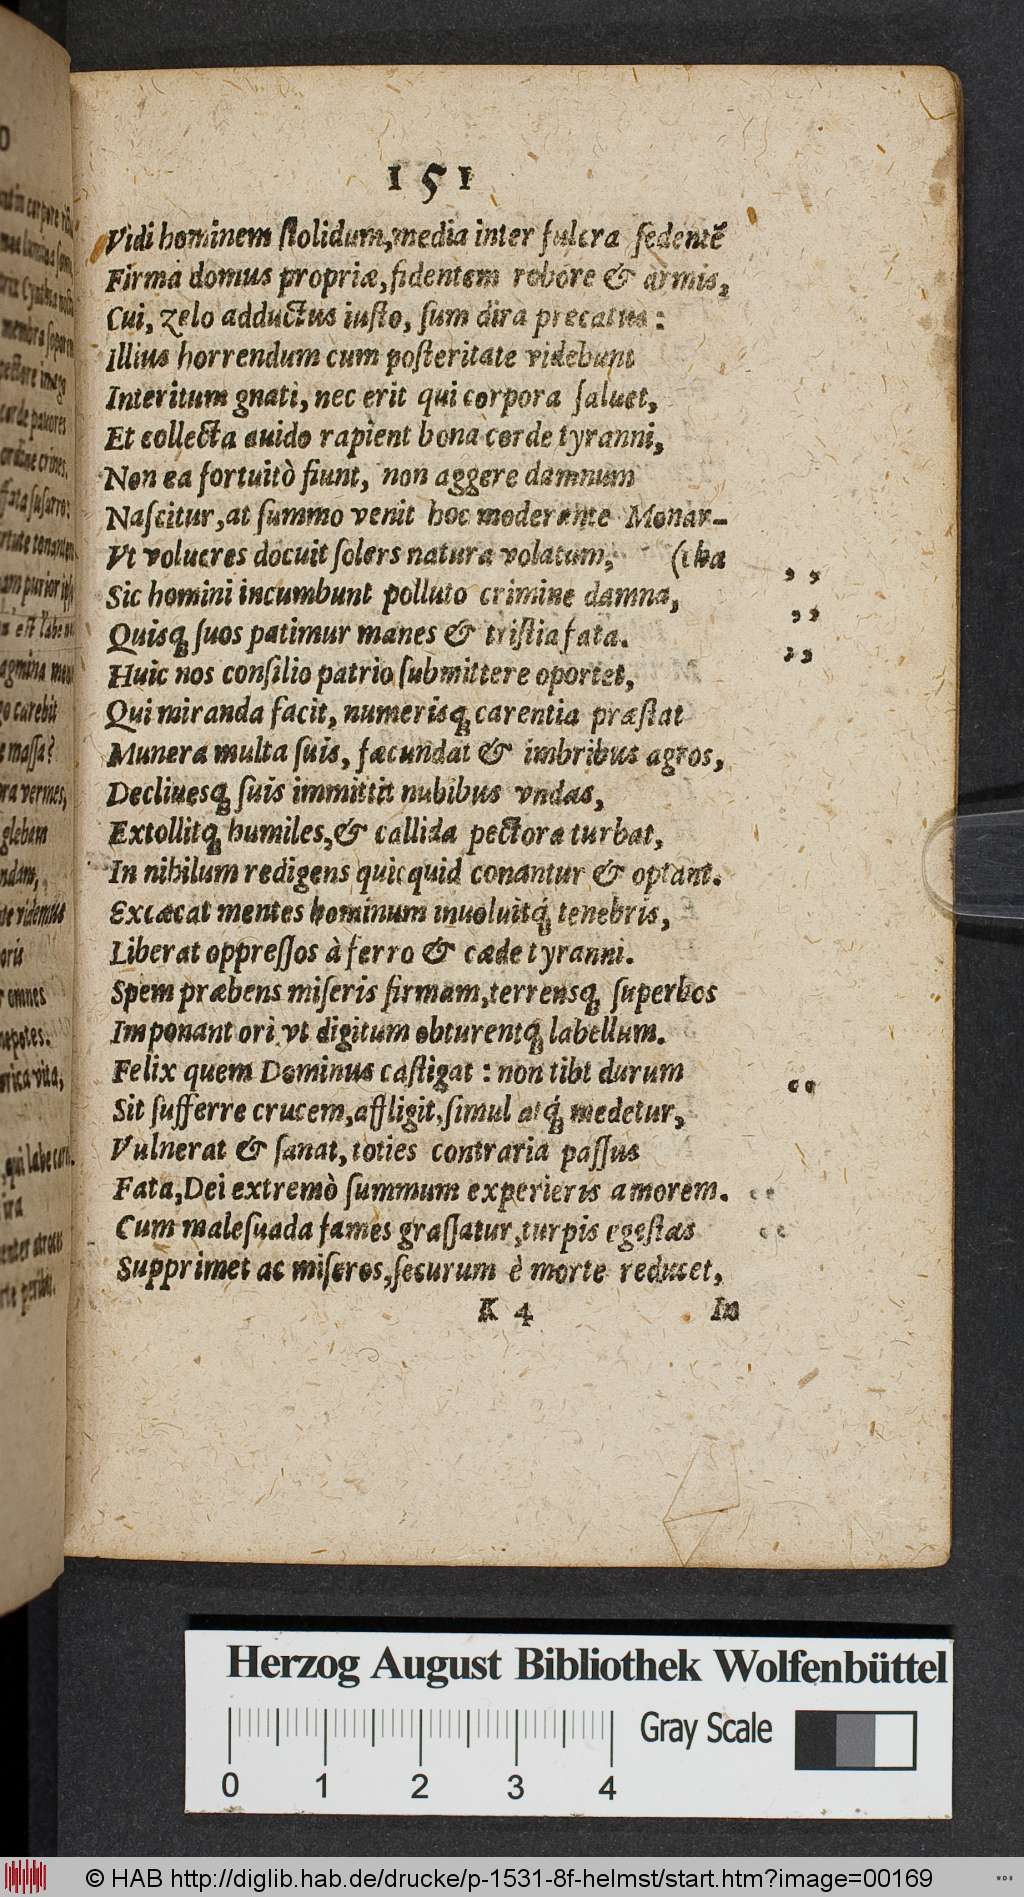 151
Vidi hominem stolidum, media inter fulcra sedentē
Firma domus propriæ, fidentem robore & armis,
Cui, zelo adductus iusto, sum dira precatus:
Illius horrendum cum posteritate videbunt
Interitum gnati, nec erit qui corpora saluet,
Et collecta auido rapient bona corde tyranni,
Non ea fortuitò fiunt, non aggere damnum
Nascitur, at summo venit hoc moderante Monar-
Vt volucres docuit solers natura volatum, (cha
Sic homini incumbunt polluto crimine damna, ,,
Quisq; suos patimur manes & tristia fata. ,,
Huic nos consilio patrio submittere oportet, ,,
Qui miranda facit, numerisq; carentia præstat
Munera multa suis, fæcundat & imbribus agros,
Decliuesq; suis immittit nubibus vndas,
Extollitq; humiles, & callida pectora turbat,
In nihilum redigens quicquid conantur & optant.
Excæcat mentes hominum inuoluitq́; tenebris,
Liberat oppressos à ferro & cæde tyranni.
Spem præbens miseris firmam, terrensq; superbos
Imponant ori vt digitum obturentq́; labellum.
Felix quem Dominus castigat: non tibi durum “
Sit sufferre crucem, affligit, simul atq́; medetur,
Vulnerat & sanat, toties contraria passus
Fata, Dei extremò summum experieris amorem. “
Cum malesuada fames grassatur, turpis egestas “
Supprimet ac miseros, securum è morte reducet,
K 4 In
Herzog August Bibliothek Wolfenbüttel
Gray Scale
0 1 2 3 4
© HAB http://diglib.hab.de/drucke/p-1531-8f-helmst/start.htm?image=00169